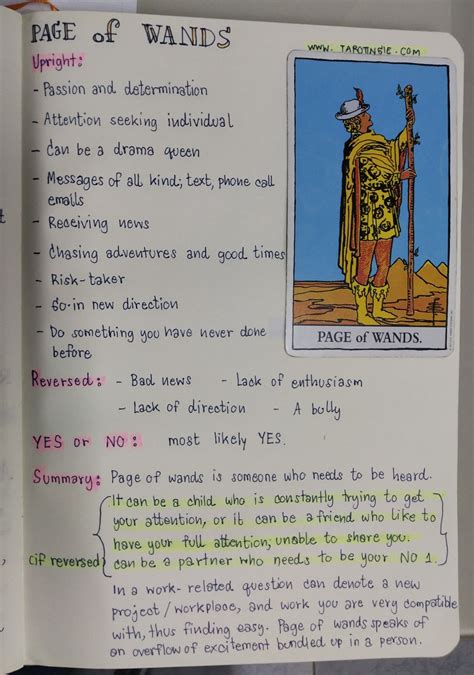 PAGE of WANDS
WWW. TAROTINGIE. COM
Upright:
- Passion and determination
- Attention seeking individual
- Can be a drama queen
- Messages of all kind; text, phone call
emails
- Receiving news
- Chasing adventures and good times
- Risk-taker
- Go-in new direction
- Do something you have never done
before
PAGE of WANDS.
Reversed: - Bad news - Lack of enthusiasm
- Lack of direction - A bully
YES or NO: most likely YES.
Summary: Page of wands is someone who needs to be heard.
It can be a child who is constantly trying to get
your attention, or it can be a friend who like to
have your full attention; unable to share you.
(if reversed) can be a partner who needs to be your NO 1.
In a work-related question can denote a new
project/workplace, and work you are very compatible
with, thus finding easy. Page of wands speaks of
an overflow of excitement bundled up in a person.